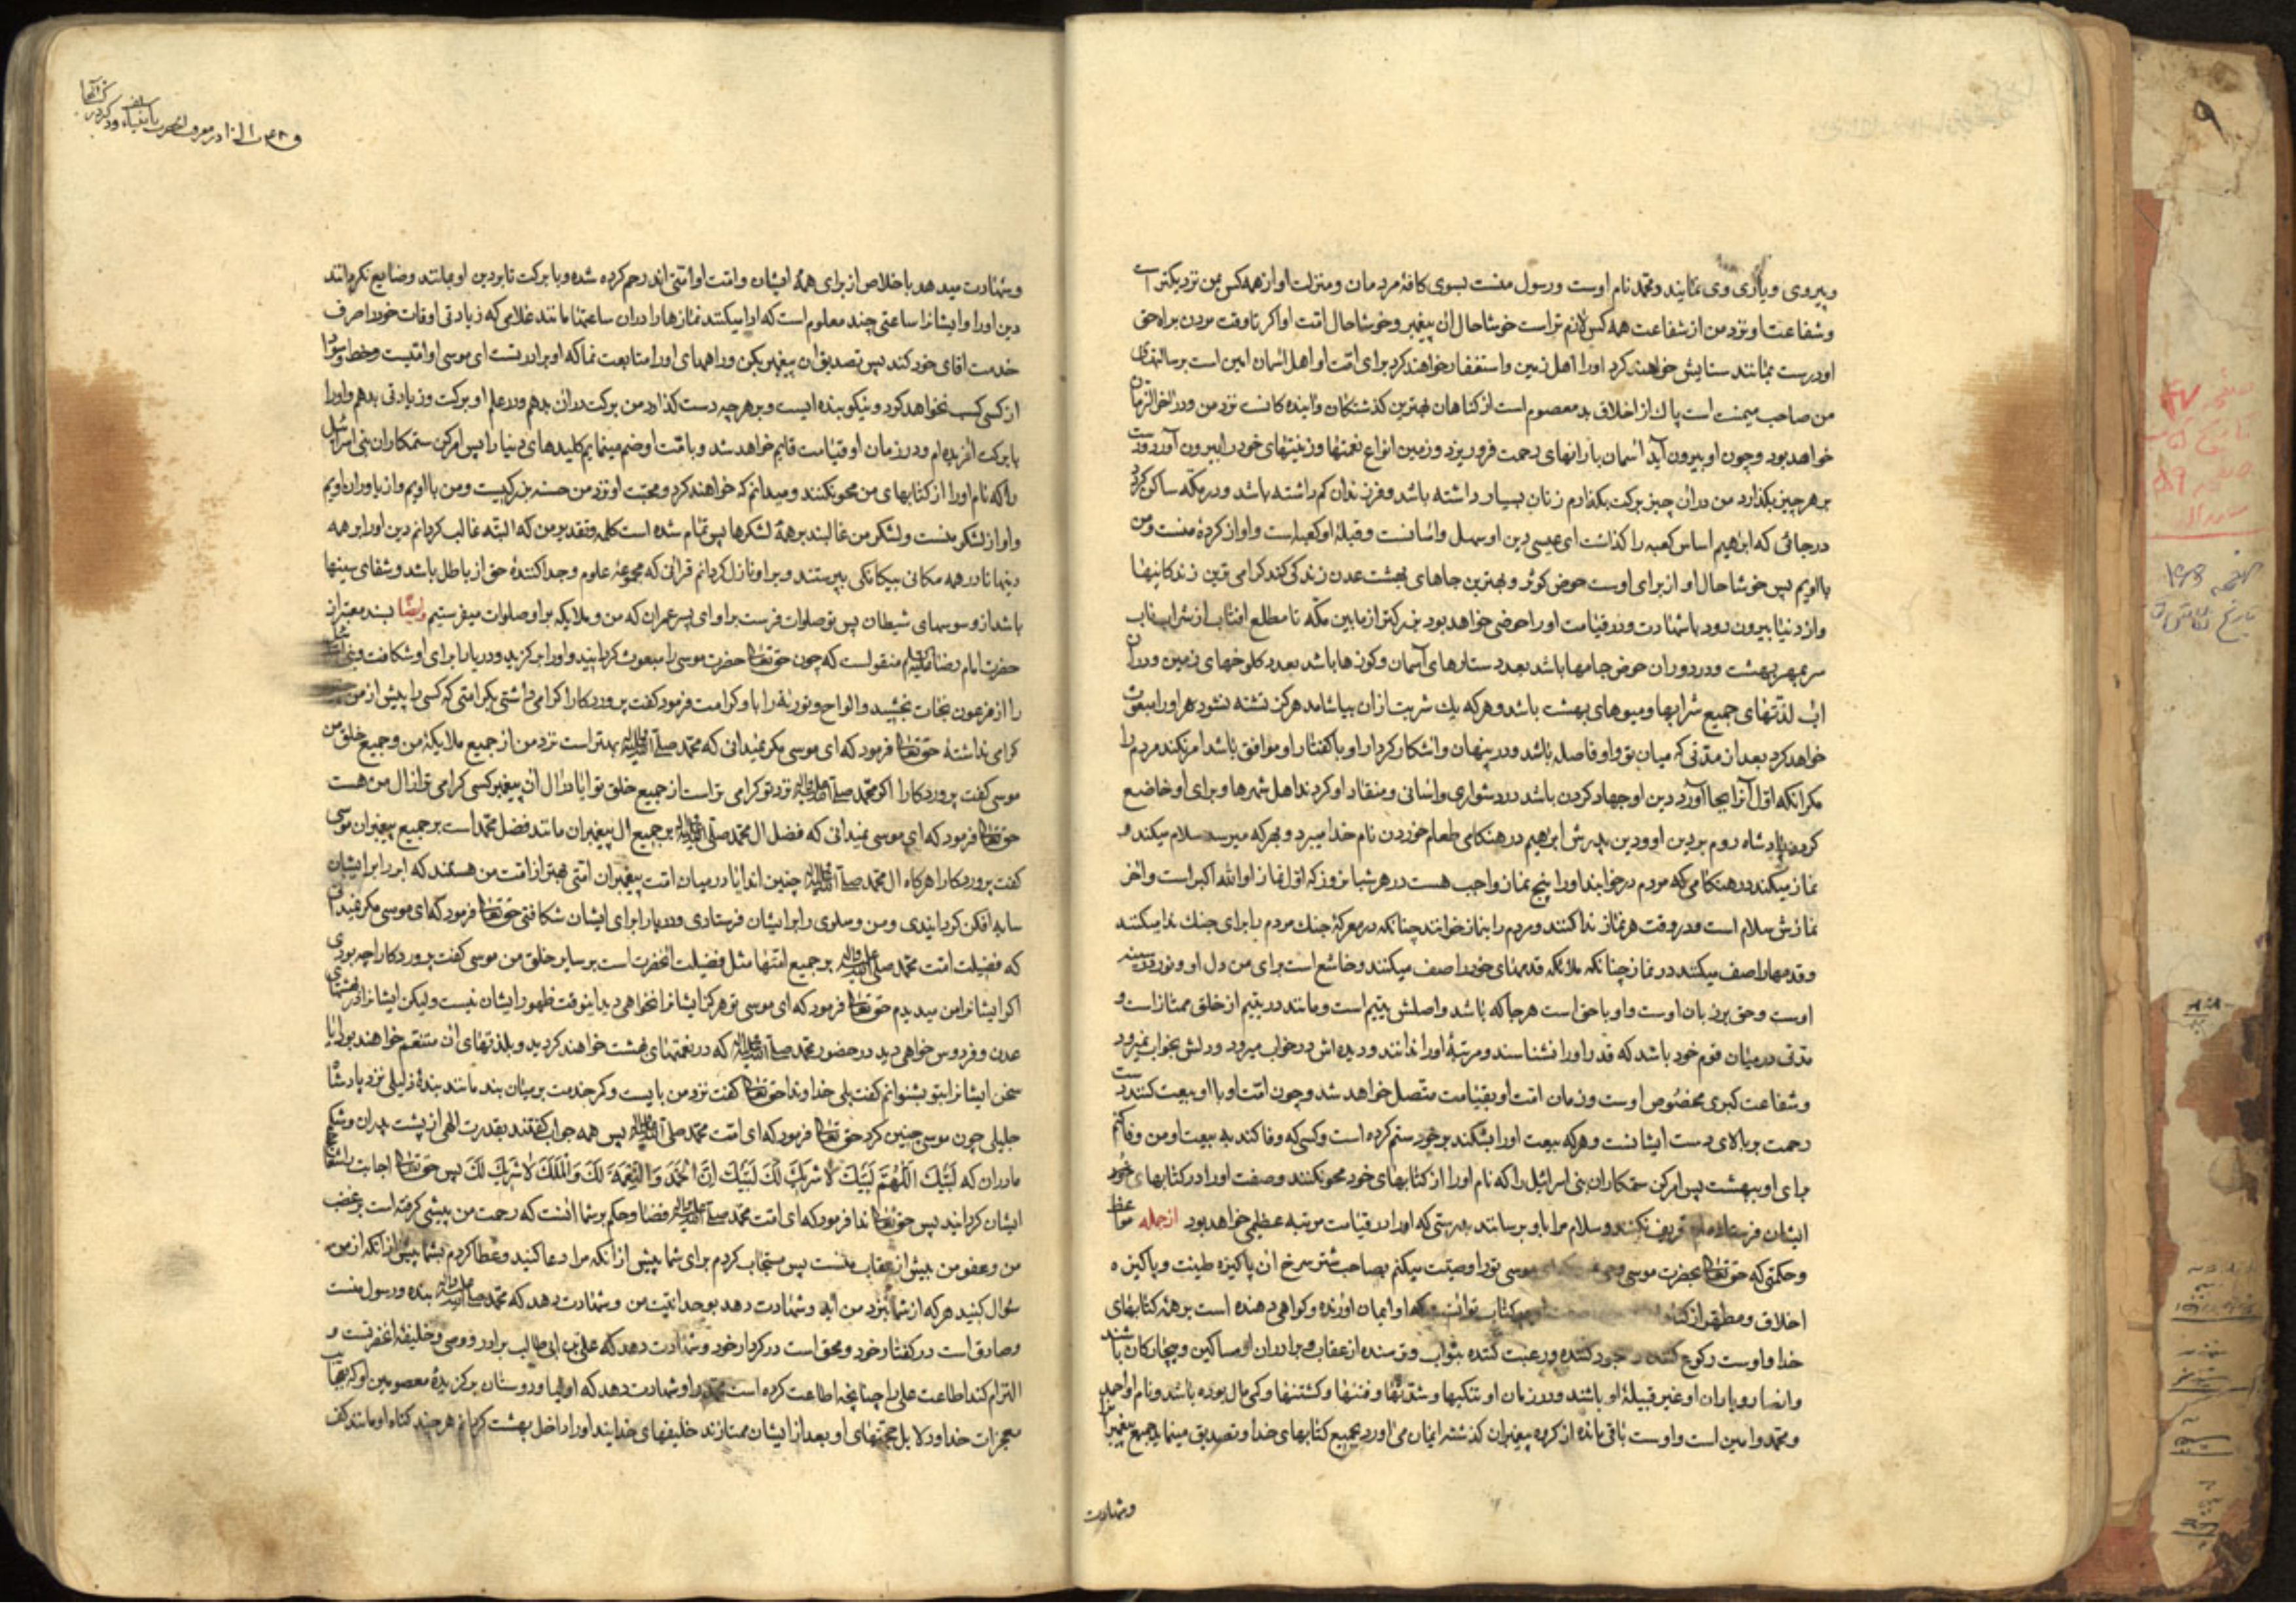 و پیروی و یاری وی نمایند و محمد نام اوست و رسول منست بسوی کافهٔ مردمان و منزلت او از همه کس بمن نزدیکتر است
و شفاعت او نزد من از شفاعت همه کس لازم تر است خوشا حال ان پیغمبر و خوشا حال امت او اکر تا وقت مردن براه حق
او درست بمانند ستایش خواهند کرد او را اهل زمین و استغفار خواهند کرد برای امت او اهل اسمان امین است برسالتهای
من صاحب میمنت است پاک از اخلاق بد معصوم است از کناهان بهترین کذشتکان و اینده کانست نزد من و در اخر الزمان
خواهد بود و چون او بیرون آید اسمان بارانهای رحمت فرو ریزد و زمین انواع نعمتها و زینتهای خود را بیرون آورد و دست
بر هر چیز بکذارد من در ان چیز برکت بکذارم زنان بسیار داشته باشد و فرزندان کم داشته باشد و در مکه ساکن کردد
در جائی که ابرهیم اساس کعبه را کذاشت ای عیسی دین او سهل و اسانست و قبلهٔ او کعبه است و او از کردهٔ منست و من
با اویم پس خوشا حال او از برای اوست حوض کوثر و بهترین جاهای بهشت عدن زندکی کند کرامی ترین زندکانیها
و از دنیا بیرون رود با شهادت و در قیامت او را حوضی خواهد بود بزرکتر از مابین مکه تا مطلع افتاب از شراب ناب
سر بمهر بهشت و در دوران حوض جامها باشد بعدد ستارهای آسمان و کوزها باشد بعدد کلوخهای زمین و در ان
اب لذتهای جمیع شرابها و میوهای بهشت باشد و هر که یک شربت از ان بیاشامد هرکز تشنه نشود هر اورا مبعوث
خواهد کرد بعد از مدتی که میان تو و او فاصله باشد و در پنهان و اشکار کردار او با کفتار او موافق باشد امر نکند مردم را
مکر انکه اول آنرا بجا آورد دین او جهاد کردن باشد در دشواری و اسانی و منقاد او کردند اهل شهرها و برای او خاضع
کردد پادشاه روم بر دین او و دین پدرش ابراهیم در هنکامی طعام خوردن نام خدا میبرد و بهر که میرسد سلام میکند و
نماز میکند در هنکامی که مردم در خوابند او را پنج نماز واجب هست در هر شبانروز که اول نماز او الله اکبر است و اخر
نمازش سلام است و در وقت هر نماز ندا کنند و مردم را بنماز خوانند چنانکه در معرکهٔ جنک مردم را برای جنک ندا میکنند
و قدمها را صف میکشد در نماز چنانکه ملائکه قدمهای خود را صف میکشند و خاشع است برای من دل او و نور در سینهٔ
اوست و حق بر زبان اوست و او با حق است هر جا که باشد و اصلش یتیم است و مانند در یتیم از خلق ممتاز است و
مدتی در میان قوم خود باشد که قدر او را نشناسند و مرتبهٔ او را ندانند و دیده اش در خواب میرود و دلش بخواب نمیرود
و شفاعت کبری مخصوص اوست و زمان امت او بقیامت متصل خواهد شد و چون امت او با او بیعت کنند دست
رحمت بر بالای دست ایشانست و هر که بیعت او را بشکند بر خود ستم کرده است و کسی که وفا کند به بیعت او من وفا کنم
برای او ببهشت پس امر کن ستمکاران بنی اسرائیل را که نام او را از کتابهای خود محو نکنند و صفت او را در کتابهای خود
ایشان فرستاده‌ام تحریف نکنند و سلام مرا باو برسانند بدرستی که او را در قیامت مرتبه عظیمی خواهد بود از جمله مواعظ
و حکمتی که حق تعالی بحضرت موسی وحی موسی تو را وصیت میکنم بصاحب شتر سرخ ان پاکیزه طینت و پاکیزه
اخلاق و مطهر از کناه او در کتاب تو انست که او ایمان اورنده و کواهی دهنده است بر همهٔ کتابهای
خدا و اوست رکوع کننده و سجود کننده و رغبت کننده بثواب و ترسنده از عقاب و برادران او مساکین و بیچارکان باشند
و انصار و یاران او غیر قبیلهٔ او باشند و در زمان او تنکیها و شدتها و فتنها و کشتنها و کمی مال بوده باشد و نام او احمد
و محمد و امین است و اوست باقی مانده از کروه پیغمبران کذشته ایمان می اورد بجمیع کتابهای خدا و تصدیق مینماید جمیع پیغمبرانرا
و شهادت
و شهادت میدهد باخلاص از برای همهٔ ایشان و امت او امتی اند رحم کرده شده و با برکت تا بر دین او بمانند و ضایع نکردانند
دین او را و ایشانرا ساعتی چند معلوم است که ادا میکنند نمازها را در ان ساعتها مانند غلامی که زیادتی اوقات خود را صرف
خدمت اقای خود کند پس تصدیق ان پیغمبر بکن و راههای او را متابعت نما که او برادر تست ای موسی او امیست و خط و سواد
از کسی کسب نخواهد کرد و نیکو بنده ایست و بر هر چه دست کذارد من برکت در ان بدهم و در علم او برکت و زیادتی بدهم و او را
با برکت افریده ام و در زمان او قیامت قایم خواهد شد و بامت او ختم مینمایم کلیدهای دنیا را پس امر کن ستمکاران بنی اسرائیل
را که نام او را از کتابهای من محو نکنند و میدانم که خواهند کرد و محبت او نزد من حسنه بزرکیست و من با اویم و از یاوران اویم
و او از لشکر منست و لشکر من غالبند بر همهٔ لشکرها پس تمام شده است کلمه و تقدیر من که البته غالب کردانم دین او را بر همه
دینها تا در همه مکانی بیکانکی بپرستند و بر او نازل کردانم قرانی که مجموعهٔ علوم و جدا کنندهٔ حق از باطل باشد و شفای سینها
باشد از وسوسهای شیطان پس تو صلوات فرست بر او ای پسر عمران که من و ملایکه بر او صلوات میفرستیم وایضًا بسند معتبر از
حضرت امام رضا علیه السلام منقولست که چون حق تعالی حضرت موسی را مبعوث کردانید و او را برکزید و دریا را برای او شکافت و بنی
را از فرعون نجات بخشید و الواح و توریة را باو کرامت فرمود کفت پروردکارا کرامی داشتی بکرامتی که کسی را پیش از من
کرامی نداشتهٔ حق تعالی فرمود که ای موسی مکر نمیدانی که محمد صلی الله علیه و اله بهتر است نزد من از جمیع ملایکهٔ من و جمیع خلق من
موسی کفت پروردکارا اکر محمد صلی الله علیه و اله نزد تو کرامی تر است از جمیع خلق تو ایا در ال ان پیغمبر کسی کرامی تر از ال من هست
حق تعالی فرمود که ای موسی نمیدانی که فضل ال محمد صلی الله علیه و اله بر جمیع ال پیغمبران مانند فضل محمد است بر جمیع پیغمبران موسی
کفت پروردکارا هرکاه ال محمد صلی الله علیه و اله چنین اند ایا در میان امت پیغمبران امتی بهتر از امت من هستند که ابر را بر ایشان
سایه افکن کردانیدی و من و سلوی را بر ایشان فرستادی و دریا را برای ایشان شکافتی حق تعالی فرمود که ای موسی مکر نمیدانی
که فضیلت امت محمد صلی الله علیه و اله بر جمیع امتها مثل فضیلت انحضرت است بر سایر خلق من موسی کفت پروردکارا چه بودی
اکر ایشانرا من میدیدم حق تعالی فرمود که ای موسی تو هرکز ایشانرا نخواهی دید اینوقت ظهور ایشان نیست ولیکن ایشانرا در بهشتهای
عدن و فردوس خواهی دید در حضور محمد صلی الله علیه و اله که در نعمتهای بهشت خواهند کردید و بلذتهای ان متنعم خواهند بود ایا
سخن ایشانرا بتو بشنوانم کفت بلی خداوندا حق تعالی کفت نزد من بایست و کمر خدمت بر میان بند مانند بندهٔ ذلیلی نزد پادشاه
جلیلی چون موسی چنین کرد حق تعالی فرمود که ای امت محمد صلی الله علیه و اله پس همه جواب کفتند بقدرت الهی از پشت پدران و شکم
مادران که لَبَّیْکَ اَللّٰهُمَّ لَبَّیْکَ لٰا شَرِیکَ لَکَ لَبَّیْکَ اِنَّ الْحَمْدَ وَ النِّعْمَةَ لَکَ وَ الْمُلْکَ لٰا شَرِیکَ لَکَ پس حق تعالی اجابت
ایشان کردانید پس حق تعالی ندا فرمود که ای امت محمد صلی الله علیه و اله قضا و حکم بر شما انست که رحمت من پیشی کرفته است بر غضب
من و عفو من پیش از عقاب منست پس مستجاب کردم برای شما پیش از انکه مرا دعا کنید و عطا کردم بشما پیش از انکه از من
سؤال کنید هر که از شما بنزد من اید و شهادت دهد بوحدانیت من و شهادت دهد که محمد صلی الله علیه و اله بنده و رسول منست
و صادق است در کفتار خود و محق است در کردار خود و شهادت دهد که علی بن ابی طالب برادر و وصی و خلیفهٔ انحضرتست و
التزام کند اطاعت علی را چنانچه اطاعت کرده است محمد را و شهادت دهد که اولیا و دوستان برکزیدهٔ معصومین او که بعجایب
معجزات خدا و دلایل حجتهای او بعد از ایشان ممتازند خلیفهای خدایند او را داخل بهشت کردانم هر چند کناه او مانند کف